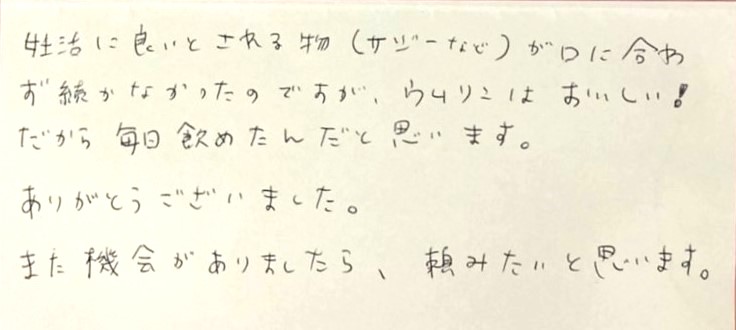 妊活に良いとされる物(サジーなど)が口に合わ
ず続かなかったのですが、ウムリンはおいしい!
だから毎日飲めたんだと思います。
ありがとうございました。
また機会がありましたら、頼みたいと思います。